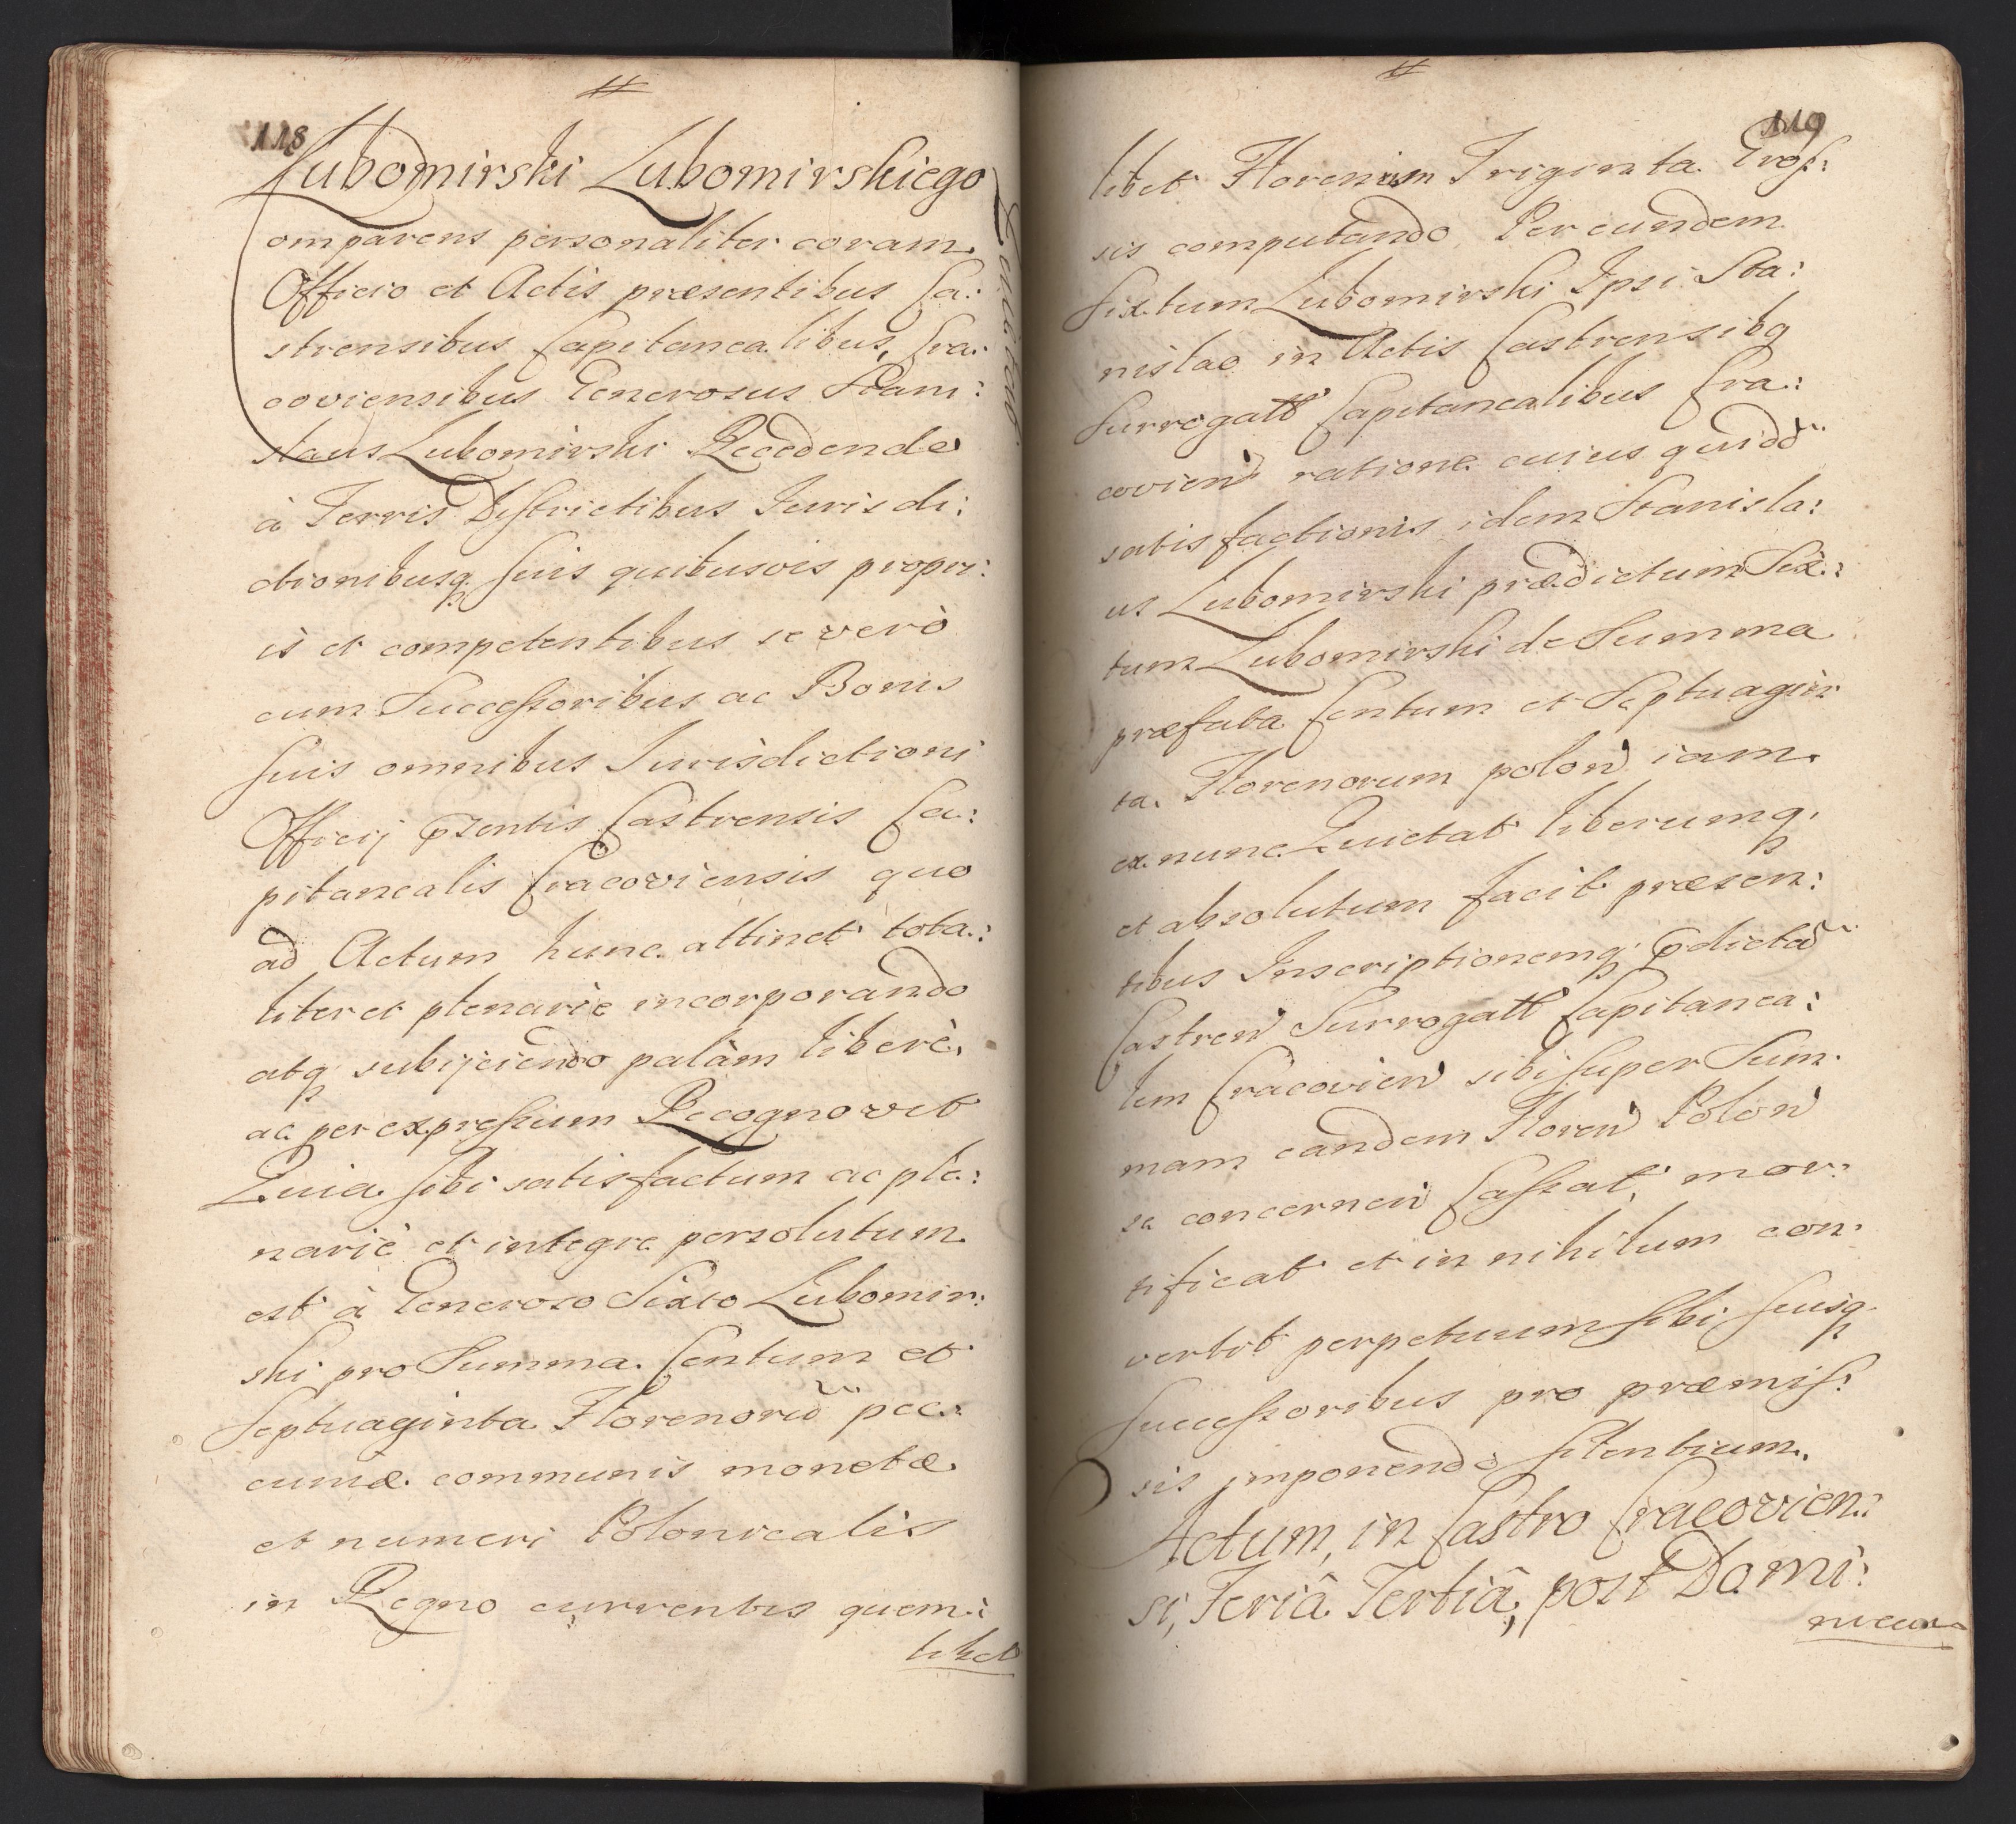 118
Lubomirski Lubomirskiego
Quietat
omparens personaliter coram
Officio et Actis præsentibus Ca:
strensibus Capitanealibus, Cra:
coviensibus Generosus Stani:
slaus Lubomirski Recedendo
à Terris Districtibus Jurisdi:
ctionibusq suis quibusvis propri:
is et competentibus se verò
cum Successoribus ac Bonis
suis omnibus Jurisdictioni
Officij pzentis Castrensis Ca:
pitanealis Cracoviensis quo
ad Actum hunc attinet tota:
liter et plenariè incorporando
atq subijciendo palàm liberè,
ac per expressum Recognovit
Quia sibi satisfactum ac ple:
nariè et integre persolutum
est à Generoso Sixto Lubomir:
ski pro Summa Centum et
Septuaginta Florenorũ pec:
cuniæ communis monetæ
et numeri Polonicalis
in Regno currentis quem:
libet
119
libet Florenum Triginta Gros:
sis computando Per eundem
Sixtum Lubomirski Ipsi Sta:
nislao in Actis Castrensibq
Surrogatt Capitanealibus Cra:
covien ratione cuius quidd
satisfactionis idem Stanisla:
us Lubomirski prædictum Six:
tum Lubomirski de Summa
præfata Centum et Septuagin
ta Florenorum polon iam
ex nunc Quietat liberumq,
et absolutum facit præsen:
tibus Inscriptionemq pdictã
Castren Surrogatt Capitanea:
lem Cracovien sibi super Sum:
mam eandem Floren Polon
se concernen Cassat, mor:
tificat et in nihilum con:
vertit perpetuum sibi suisq
Successoribus pro præmis:
sis imponendo silentium.
Actum, in Castro Cracovien:
si, Feriâ Tertiâ, post Domi:
nicam